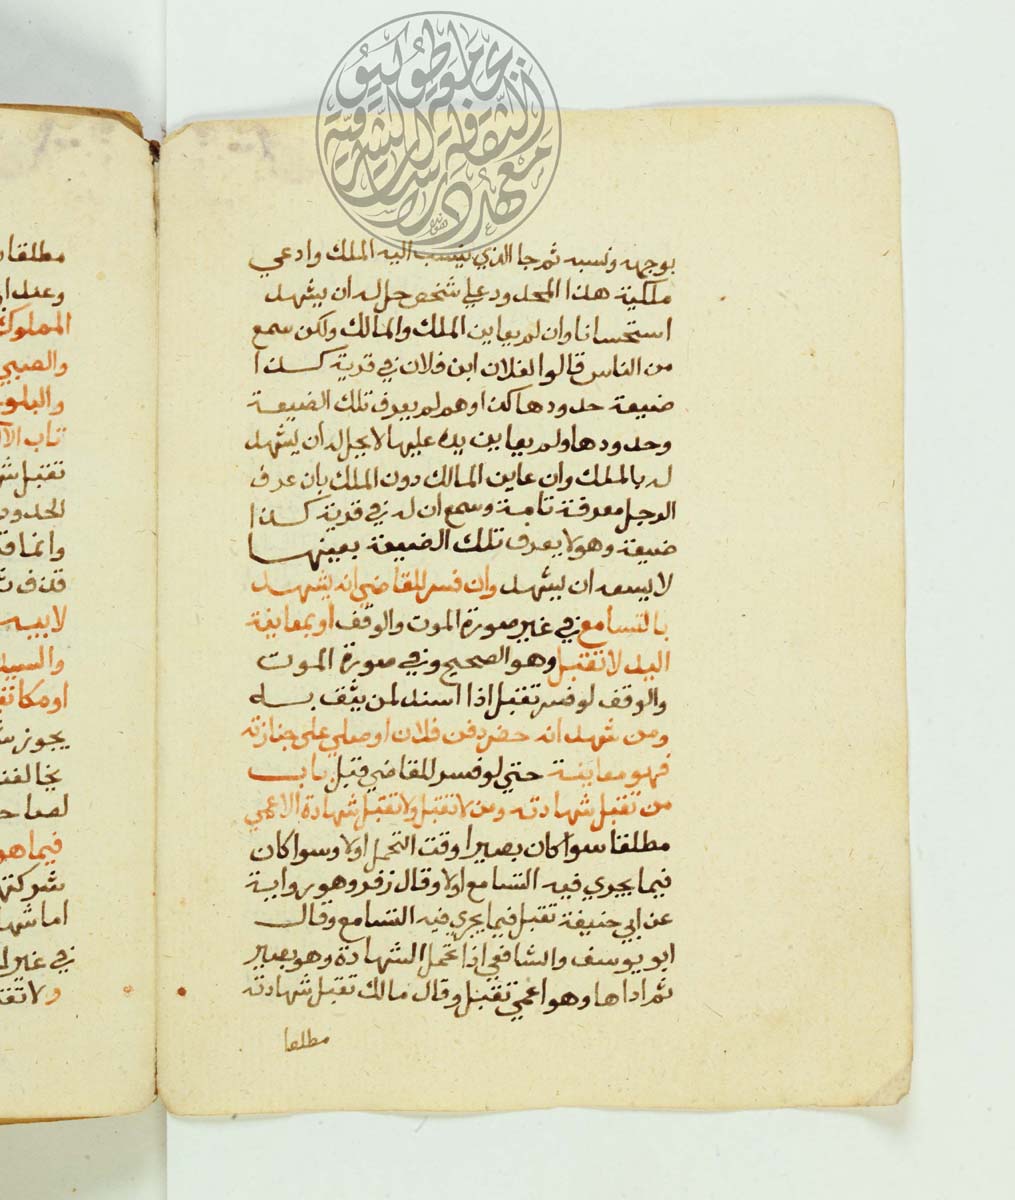 بوجهه ونسبه ثم جا الذي ينسب اليه الملك وادعي
ملكية هذا المحدود علي شخص حل له ان يشهد
استحسانا وان لم يعاين الملك والمالك ولكن سمع
من الناس قالوا لفلان ابن فلان في قرية كذا
ضيعة حدودها كذا وهو لم يعرف تلك الضيعة
وحدودها ولم يعاين يده عليها لا يحل له ان يشهد
له بالملك وان عاين المالك دون الملك بان عرف
الرجل معرفة تامة وسمع ان له في قرية كذا
ضيعة وهو لا يعرف تلك الضيعة بعينها
لا يسعه ان يشهد وان فسر للقاضي انه يشهد
بالتسامع في غير صورة الموت والوقف او بمعاينة
اليد لا تقبل وهو الصحيح وفي صورة الموت
والوقف لو فسر تقبل اذا اسند لمن يثق به
ومن شهد انه حضر دفن فلان او صلي علي جنازته
فهو معاينة حتي لو فسر للقاضي قبل باب
من تقبل شهادته ومن لا تقبل ولا تقبل شهادة الاعمي
مطلقا سوا كان بصيرا وقت التحمل اولا وسوا كان
فيما يجري فيه التسامع اولا وقال زفر وهو رواية
عن ابي حنيفة تقبل فيما يجري فيه التسامع وقال
ابو يوسف والشافعي اذا تحمل الشهادة وهو بصير
ثم اداها وهو اعمي تقبل وقال مالك تقبل شهادته
مطلقا
مطلقا
المملوك
والصبي
لا يقبل
يجوز
فيما هو
اما
في غير
ولا